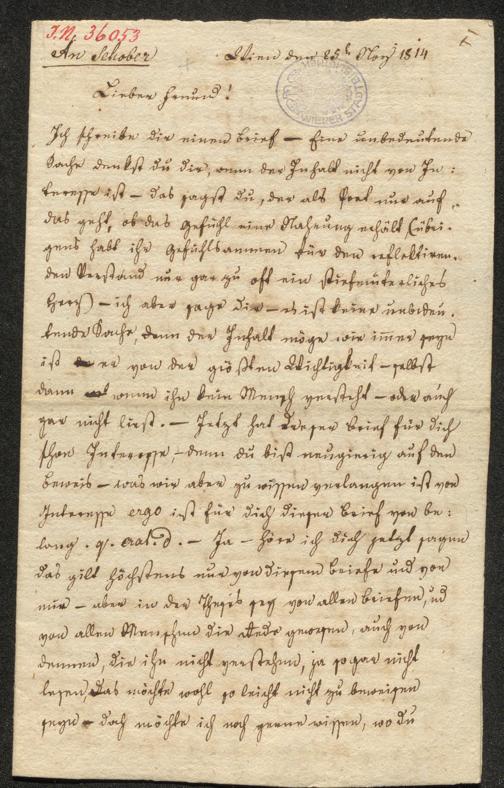 I.N. 36053
An Schober
Wien den 25t Nov 1814
GEMEINDE WIEN STADTBIBLIOTHEK
Lieber Freund!
Ich schreibe dir einen Brief – Eine unbedeutende
Sache denkst du dir, wenn der Inhalt nicht von In:
teresse ist – das sagst du, der als Poet nur auf
das geht, ob das Gefühl eine Nahrung erhält (übri-
gens habt ihr Gefühlsammen für den reflektiren-
den Verstand nur gar zu oft ein stiefmütterliches
Herz) – ich aber sage dir – es ist keine unbedeu.
tende Sache, denn der Inhalt möge wie immer seyn
ist er von der größten Wichtigkeit – selbst
dann wenn ihn kein Mensch versteht – oder auch
gar nicht liest. – Jetzt hat dieser Brief für dich
schon Interesse, – denn du bist neugierig auf den
Beweis – was wir aber zu wissen verlangen ist von
Interesse ergo ist für dich dieser Brief von be:
lang. q. erat. d. – Ja – höre ich dich jetzt sagen
das gilt höchstens nur von diesem Briefe und von
mir – aber in der Thesis sey von allen Briefen, und
von allen Menschen die Rede gewesen, auch von
denen, die ihn nicht verstehen, ja sogar nicht
lesen, das möchte wohl so leicht nicht zu beweisen
seyn – doch möchte ich noch gerne wissen, wo du